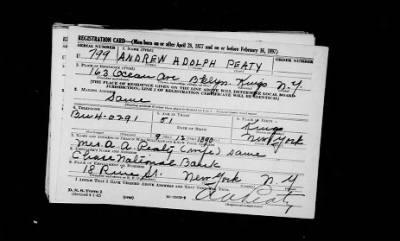 REGISTRATION CARD—(Men born on or after April 28, 1877 and on or before February 16, 1897)
SERIAL NUMBER 1. NAME (Print) ORDER NUMBER
U 799 ANDREW ADOLPH PEATY
2. PLACE OF RESIDENCE (Print)
163 Ocean Ave Bklyn. Kings N.Y.
[THE PLACE OF RESIDENCE GIVEN ON THE LINE ABOVE WILL DETERMINE LOCAL BOARD
JURISDICTION; LINE 2 OF REGISTRATION CERTIFICATE WILL BE IDENTICAL]
3. MAILING ADDRESS
Same
4. TELEPHONE 5. AGE IN YEARS
51 Kings
BU 4-0291 DATE OF BIRTH
1890 New York
7. NAME AND ADDRESS OF PERSON WHO WILL ALWAYS KNOW YOUR ADDRESS
Mrs A. A. Peaty (wife) same
8. EMPLOYER'S NAME AND ADDRESS
Chase National Bank
9. PLACE OF EMPLOYMENT OR BUSINESS
18 Pine St. New York N Y
I AFFIRM THAT I HAVE VERIFIED ABOVE ANSWERS AND THAT THEY ARE TRUE.
D. S. S. Form 1
A A Peaty